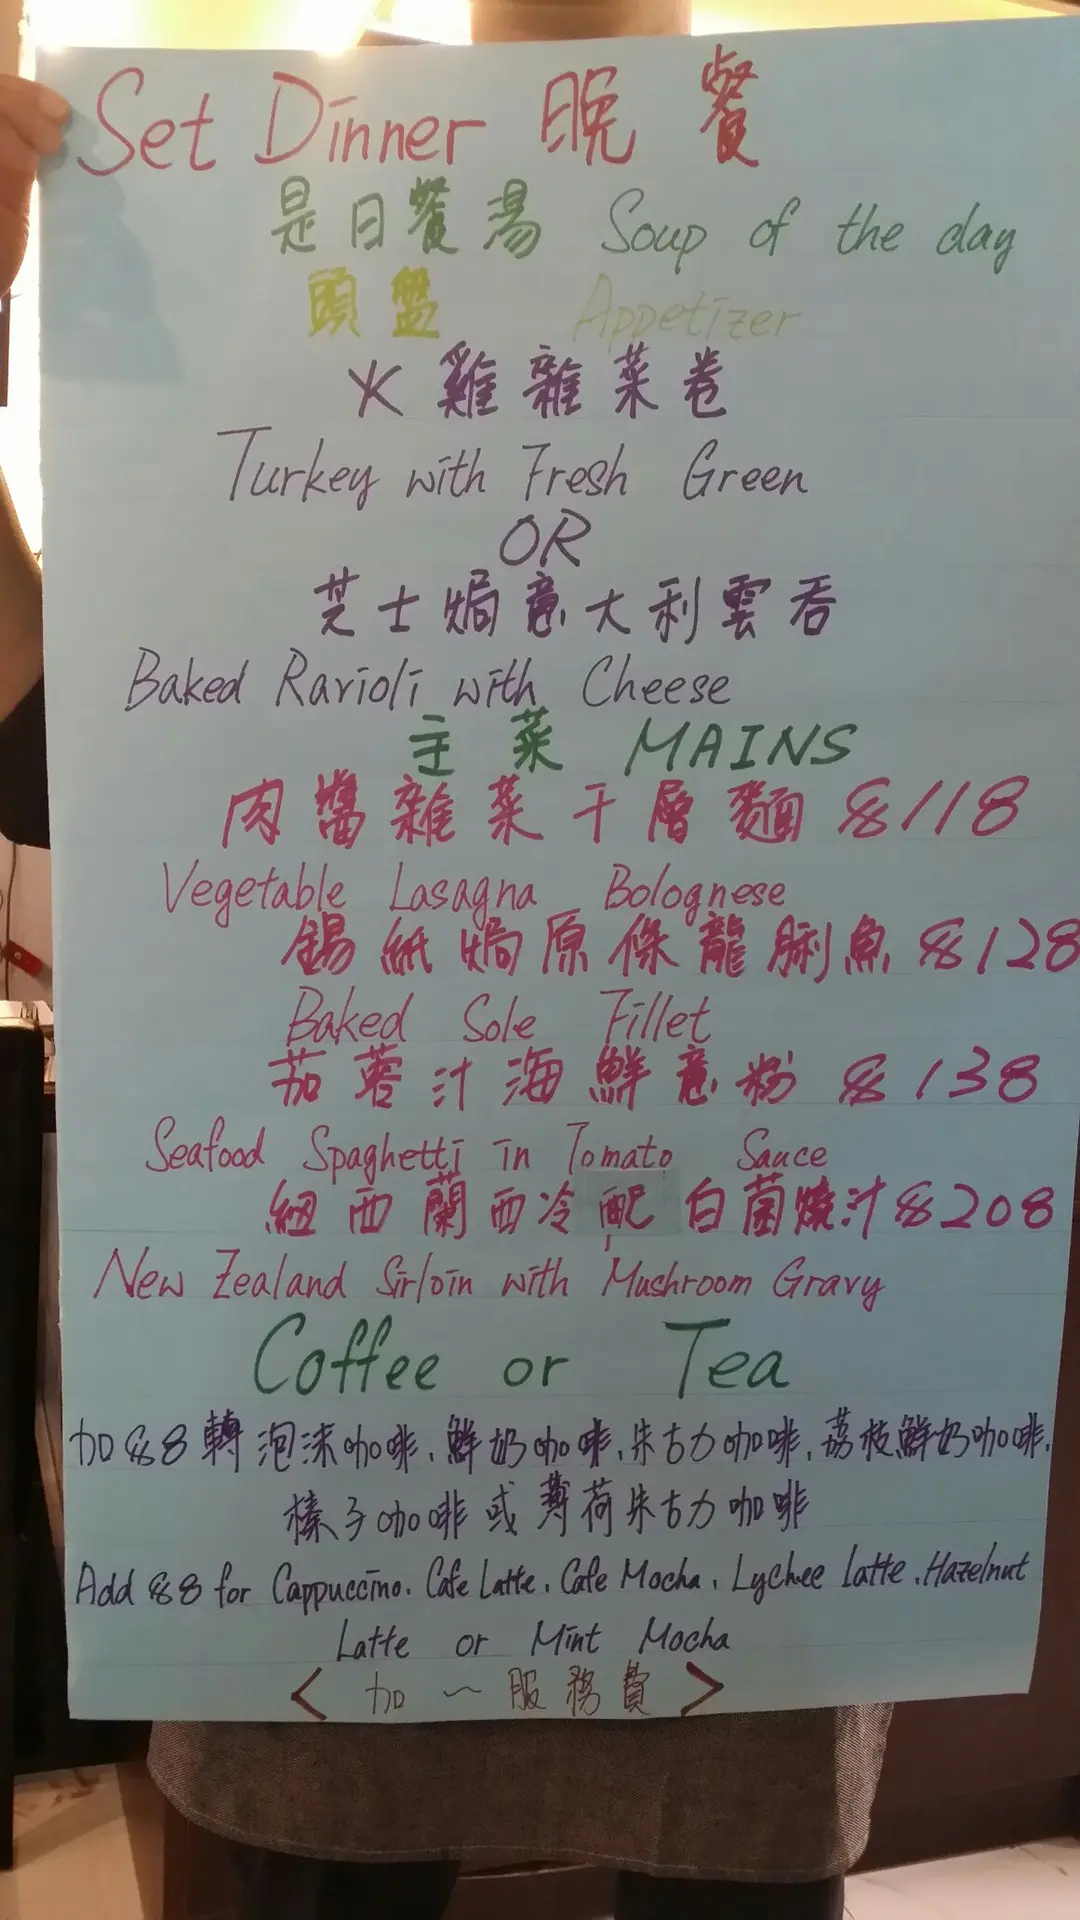 Set Dinner 晚餐
是日餐湯 Soup of the day
頭盤 Appetizer
火雞雜菜卷
Turkey with Fresh Green
OR
芝士焗意大利雲吞
Baked Ravioli with Cheese
主菜 MAINS
肉醬雜菜千層麵 $118
Vegetable Lasagna Bolognese
錫紙焗原條龍脷魚 $128
Baked Sole Fillet
茄蓉汁海鮮意粉 $138
Seafood Spaghetti in Tomato Sauce
紐西蘭西冷配白菌燒汁 $208
New Zealand Sirloin with Mushroom Gravy
Coffee or Tea
加 $8 轉泡沫咖啡, 鮮奶咖啡, 朱古力咖啡, 荔枝鮮奶咖啡,
榛子咖啡或薄荷朱古力咖啡
Add $8 for Cappuccino, Cafe Latte, Cafe Mocha, Lychee Latte, Hazelnut
Latte or Mint Mocha
< 加一服務費 >